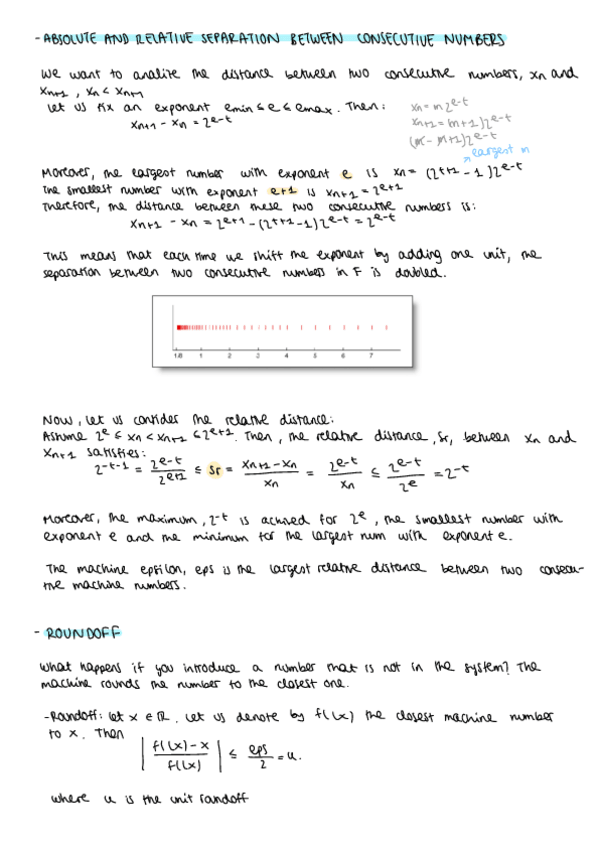 - ABSOLUTE AND RELATIVE SEPARATION BETWEEN CONSECUTIVE NUMBERS
We want to analize the distance between two consecutive numbers, xn and
xn+1, xn < xn+1
Let us fix an exponent emin ≤ e ≤ emax. Then:
xn+1 - xn = 2^e-t
xn = m 2^e-t
xn+1 = (m+1) 2^e-t
(m - m+1) 2^e-t
largest m
Moreover, the largest number with exponent e is xn = (2^t+1 - 1) 2^e-t
The smallest number with exponent e+1 is xn+1 = 2^e+1
Therefore, the distance between these two consecutive numbers is:
xn+1 - xn = 2^e+1 - (2^t+1 - 1) 2^e-t = 2^e-t
This means that each time we shift the exponent by adding one unit, the
separation between two consecutive numbers in F is doubled.
1/8 1 2 3 4 5 6 7
Now, let us consider the relative distance:
Assume 2^e ≤ xn < xn+1 ≤ 2^e+1. Then, the relative distance, Sr, between xn and
xn+1 satisfies:
2^-t-1 = 2^e-t / 2^e+1 ≤ Sr = xn+1 - xn / xn = 2^e-t / xn ≤ 2^e-t / 2^e = 2^-t
Moreover, the maximum, 2^-t is achived for 2^e, the smallest number with
exponent e and the minimum for the largest num with exponent e.
The machine epsilon, eps is the largest relative distance between two consecu-
tive machine numbers.
- ROUNDOFF
What happens if you introduce a number that is not in the system? The
machine rounds the number to the closest one.
- Roundoff: let x ∈ ℝ. Let us denote by fl(x) the closest machine number
to x. Then
| fl(x) - x / fl(x) | ≤ eps / 2 = u.
where u is the unit roundoff